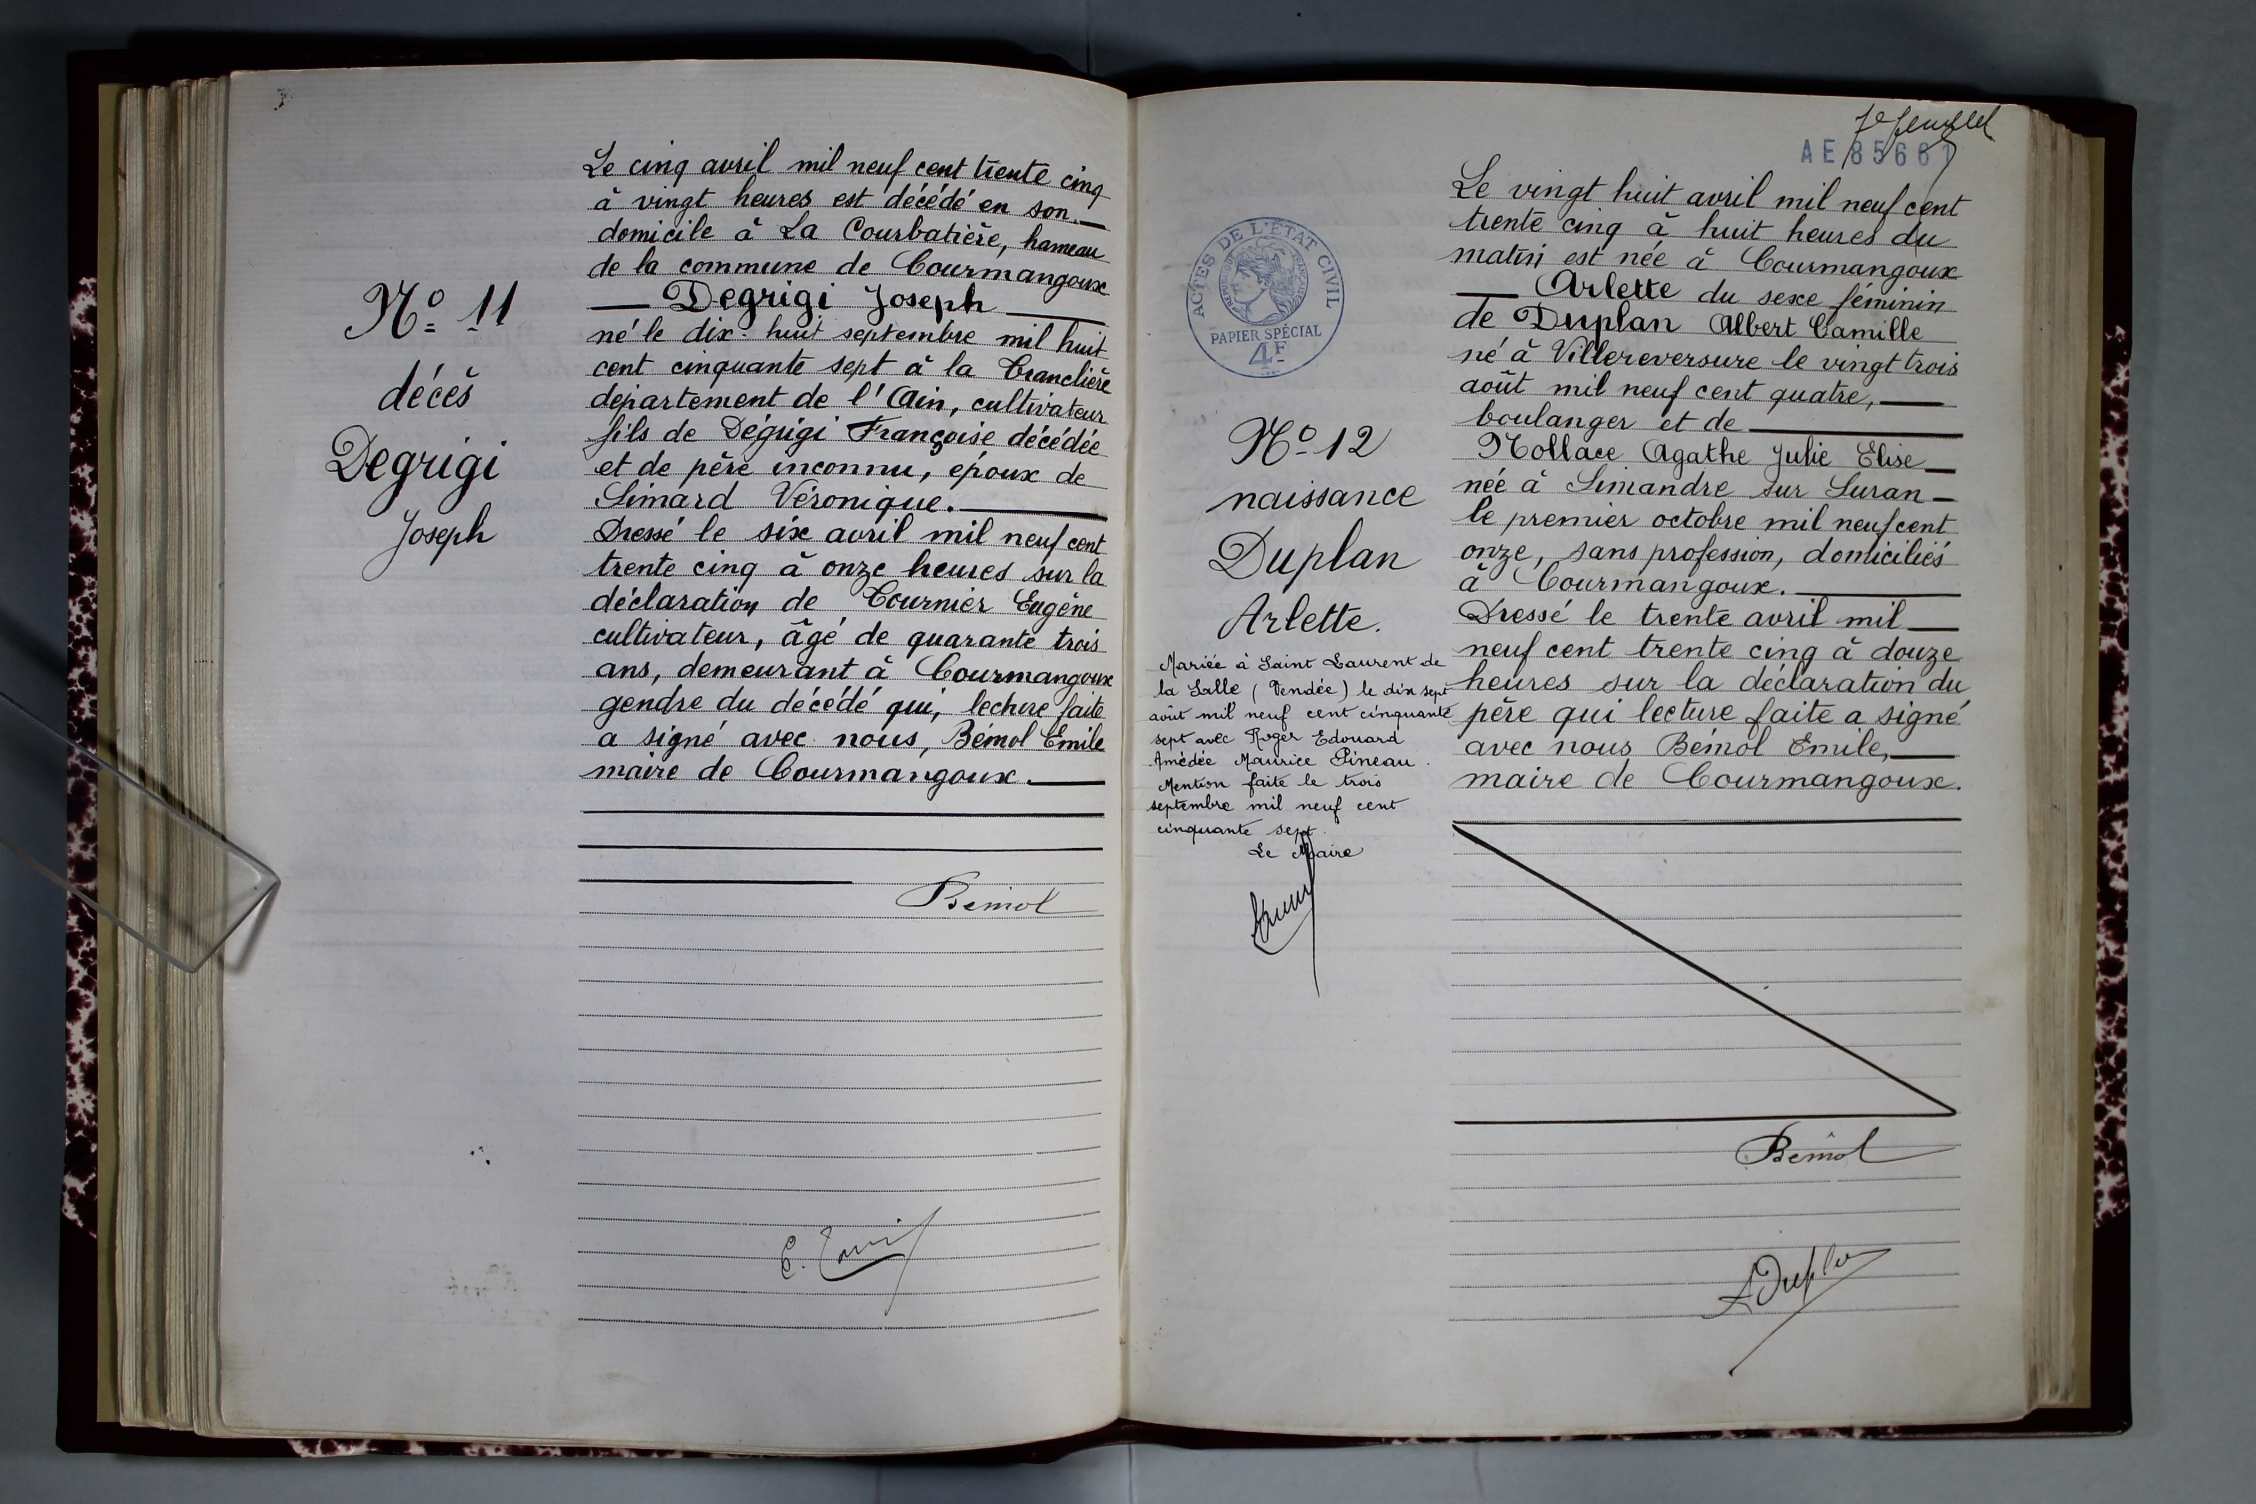 Nº 11
décès
Degrigi
Joseph
Le cinq avril mil neuf cent trente cinq
à vingt heures est décédé en son
domicile à La Courbatière, hameau
de la commune de Courmangoux
Degrigi Joseph
né le dix-huit septembre mil huit
cent cinquante sept à la Tranclière
département de l'Ain, cultivateur
fils de Dégrigi Françoise décédée
et de père inconnu, époux de
Simard Véronique.
Dressé le six avril mil neuf cent
trente cinq à onze heures sur la
déclaration de Tournier Eugène
cultivateur, âgé de quarante trois
ans, demeurant à Courmangoux
gendre du décédé qui, lecture faite
a signé avec nous, Bémol Emile
maire de Courmangoux.
Bémol
7e feuillet
AE 85661
ACTES DE L'ÉTAT CIVIL
RÉPUBLIQUE FRANÇAISE
PAPIER SPÉCIAL
4F
Nº 12
naissance
Duplan
Arlette.
Mariée à Saint Laurent de
la Salle (Vendée) le dix sept
août mil neuf cent cinquante
sept avec Roger Edouard
Amédée Maurice Pineau.
Mention faite le trois
septembre mil neuf cent
cinquante sept.
Le Maire
Le vingt huit avril mil neuf cent
trente cinq à huit heures du
matin est née à Courmangoux
Arlette du sexe féminin
de Duplan Albert Camille
né à Villereversure le vingt trois
août mil neuf cent quatre,
boulanger et de
Mollace Agathe Julie Elise
née à Simandre sur Suran
le premier octobre mil neuf cent
onze, sans profession, domiciliés
à Courmangoux.
Dressé le trente avril mil
neuf cent trente cinq à douze
heures sur la déclaration du
père qui lecture faite a signé
avec nous Bémol Emile,
maire de Courmangoux.
Bémol
A Duplan